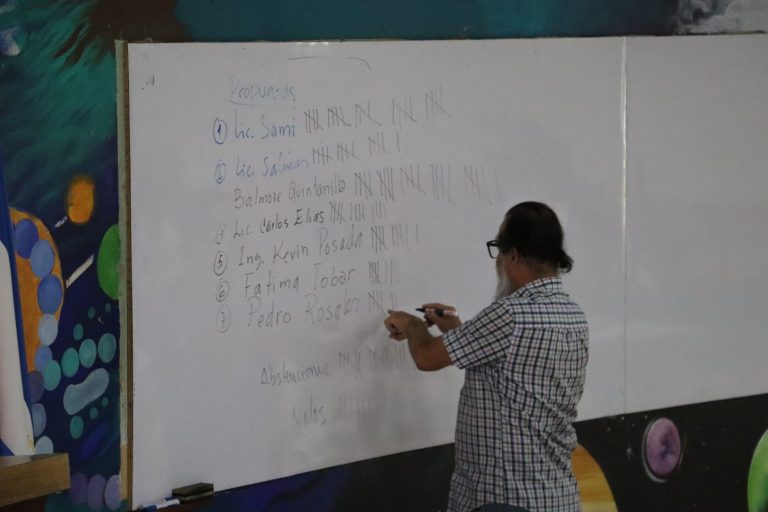 Propuestas
① Lic. Sami
② Lic. Salinas
Balmore Quintanilla
4 Lic. Carlos Elias
⑤ Ing. Kevin Posada
⑥ Fatima Tobar
⑦ Pedro Rosales
Abstenciones